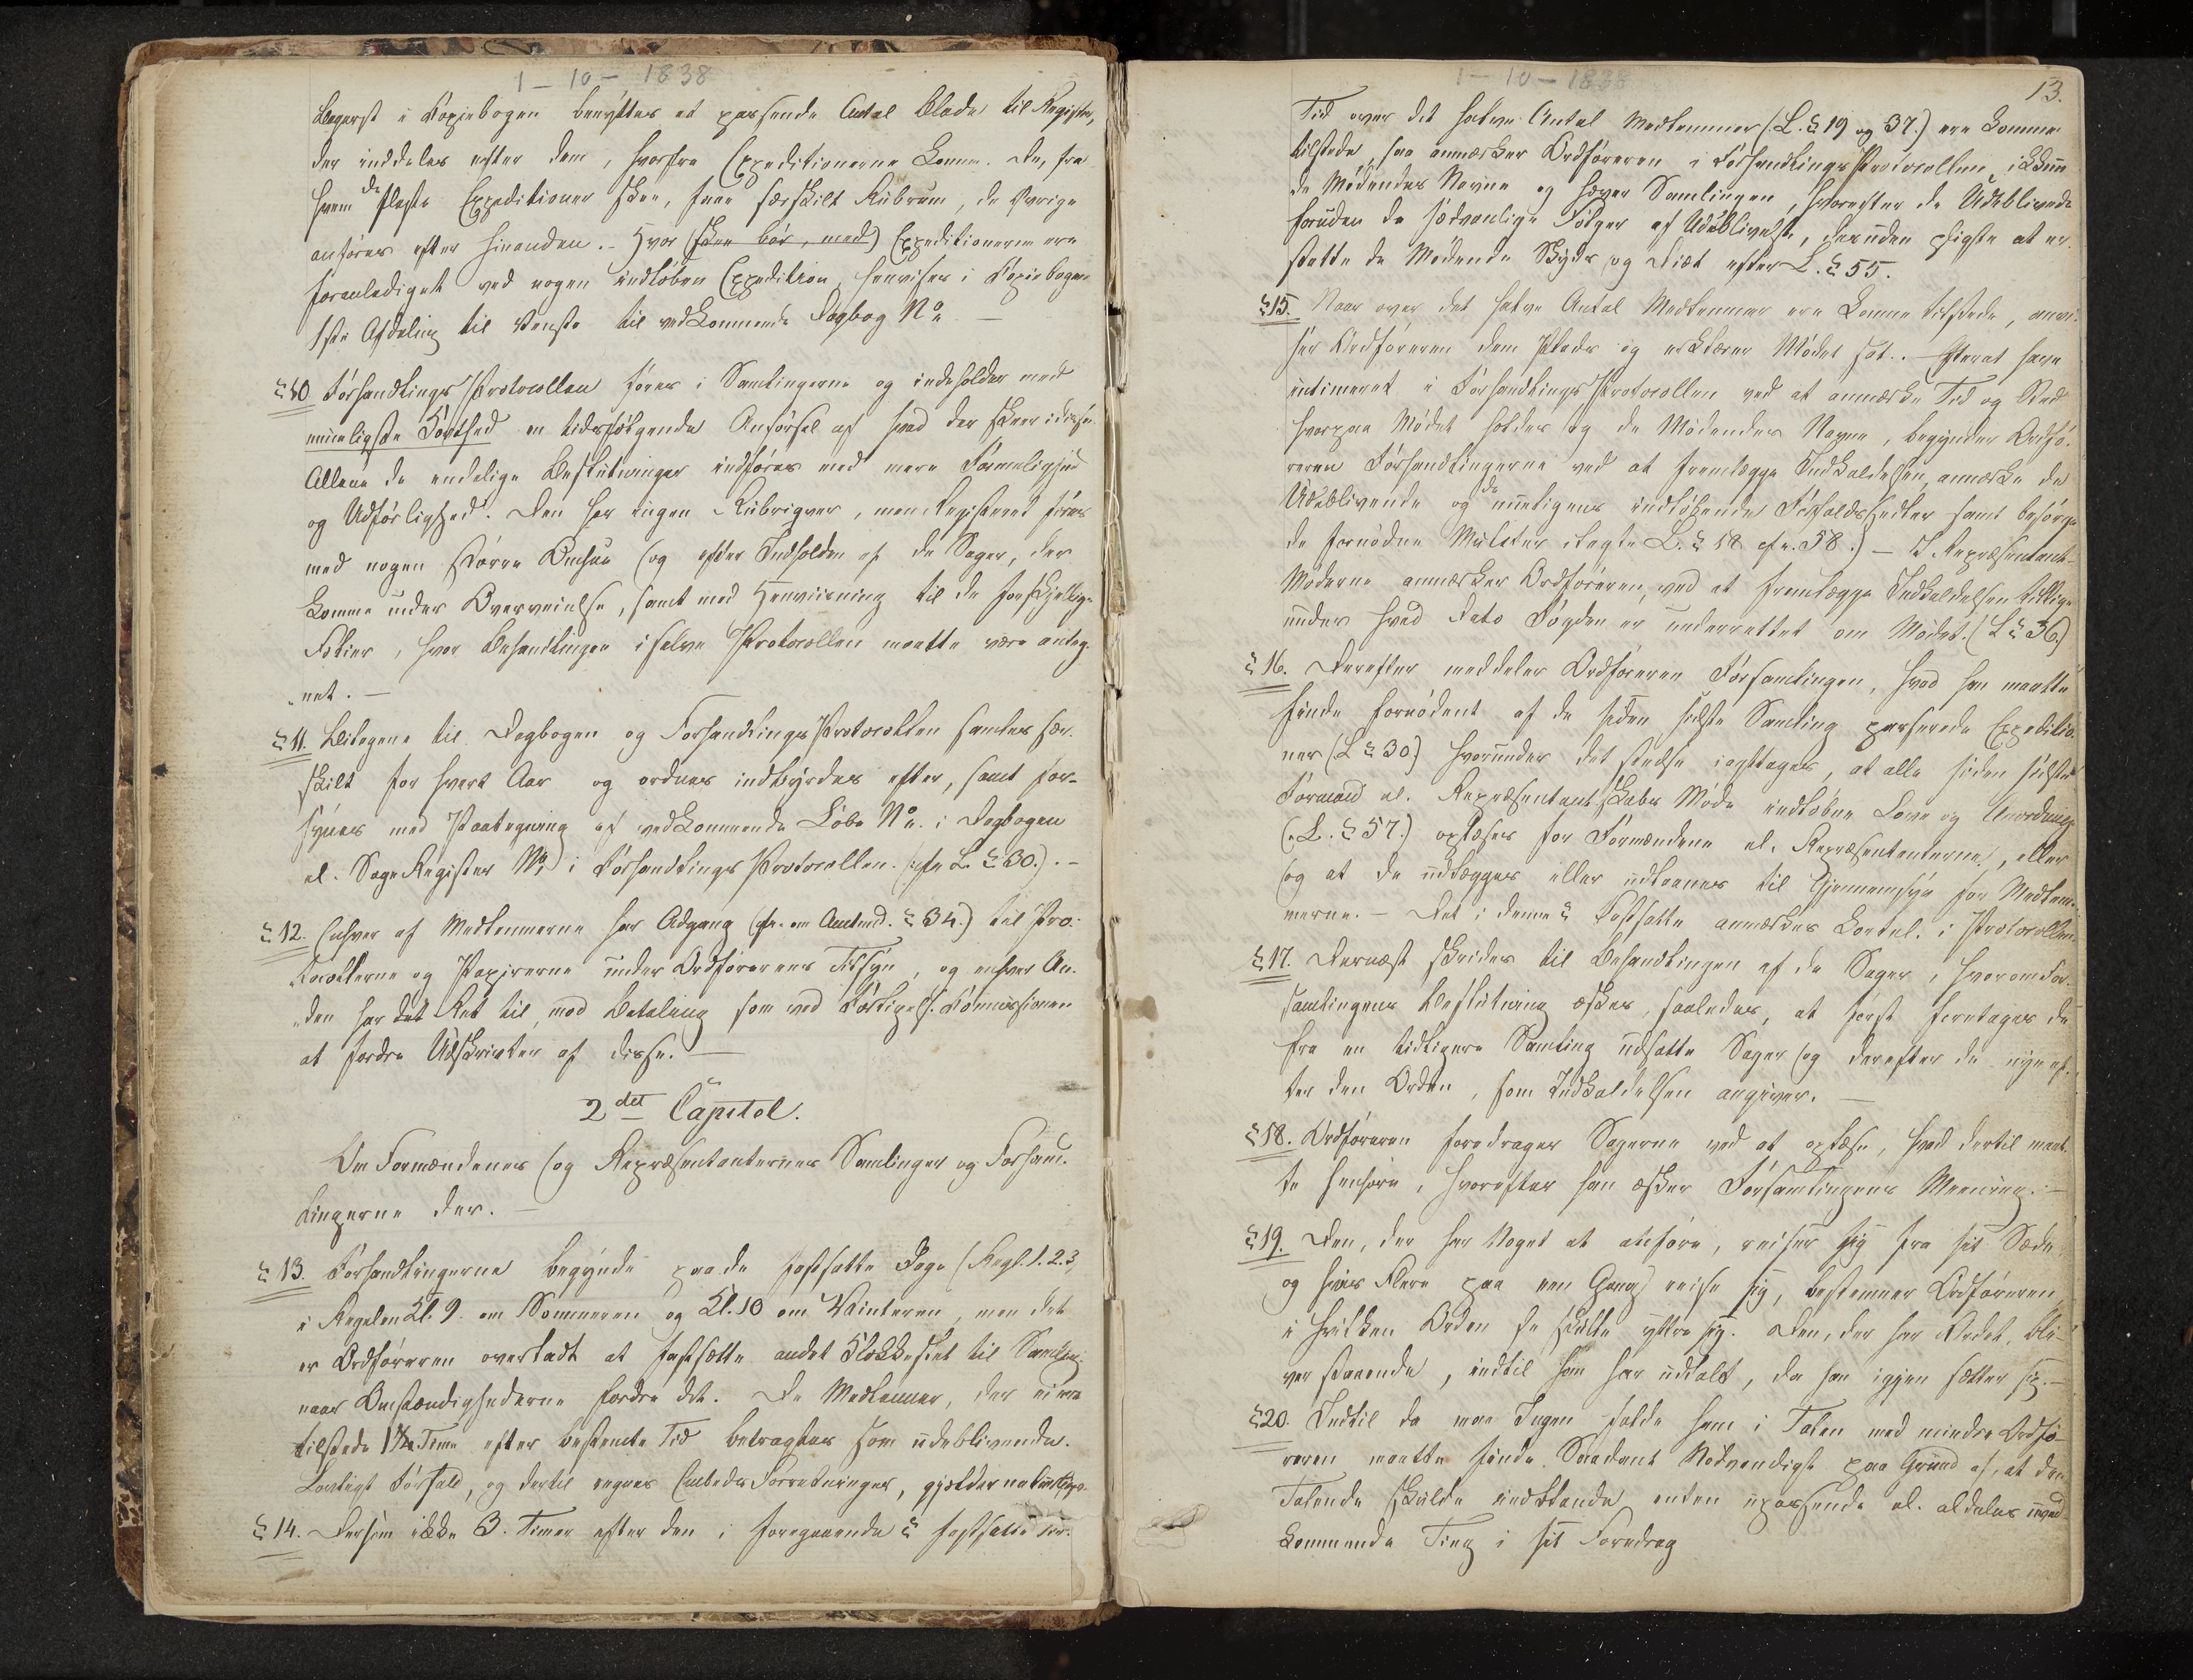 1 - 10 - 1838
Bagerst i Kopiebogen benyttes et passende Antal Blade til Register,
der inddeles efter dem, hvorfra Expeditionerne komme. De, fra
hvem de fleste Expeditioner skee, faae særskilt Rubrum, de øvrige
anføres efter hinanden. - Hvor (skee bør, med) Expeditionerne ere
foranlediget ved nogen indløben Expedition, henvises i Kopiebogens
1ste Afdeling til Venste til vedkommende Dagbog No. -
§ 10 Forhandlings Protocollen føres i Samlingerne og indeholder med
mueligste Korthed en tidsfølgende Anførsel af hvad der skeer i disse.
Allene de endelige Beslutninger indføres med mere Førmelighed
og Udførlighed. Den har ingen Rubriqver, men Registeret føres
med nogen større Omhue og efter Indholdet af de Sager, der
komme under Overveielse, samt med Henviisning til de forskjellige
Folier, hvor Behandlingen i selve Protocollen maatte være anteg-
net. -
§ 11. Bilagene til Dagbogen og Forhandlings Protocollen samles sær-
skilt for hvert Aar og ordnes indbyrdes efter, samt for-
synes med Paategning af vedkommende Løbe No. i Dagbogen
el. Sage Register No. i Forhandlings Protocollen. (cfr L. § 30.). -
§ 12. Enhver af Medlemmerne har Adgang (cfr. om Amtmd. § 34.) til Pro-
tocollerne og Papirerne under Ordførerens Tilsyn, og enhver An-
den har det Ret til, mod Betaling som ved Forligels. Commissionen
at fordre Udskrivter af disse. -
2det Capitel.
Om Formændenes og Repræsentanternes Samlinger og Forhand-
lingerne der. -
§ 13. Forhandlingerne begynde paa de fastsatte Dage (Regl. 1. 2. 3,
i Regelen Kl. 9. om Sommeren og Kl. 10 om Vinteren, men det
er Ordføreren overladt at fastsætte andet Klokkeslet til Samling,
naar Omstændighederne fordre det. De Medlemmer, der ei ere
tilstede 1½ Time efter bestemte Tid betragtes som udeblivende.
Lovligt Forfald, og dertil regnes Embeds Forretninger, gjelder naturligvis.
§ 14. Dersom ikke 3. Timer efter den i foregaaende § fastsatte
1 - 10 - 1838
13.
Tid over det halve Antal Medlemmer (L. § 19 og 37.) ere komme
tilstede, saa anmærker Ordføreren i Forhandlings Protocollen,
de Mødendes Navne og hæver Samlingen, hvorefter de Udeblivende
foruden de sædvanlige Følger af Udeblivelse, desuden pligte at er-
statte de Mødende Skyds og Diæt efter L. § 55.
§ 15. Naar over det halve Antal Medlemmer ere komne tilstede, anvi-
ser Ordføreren dem Plads og erklærer Mødet sat. - Efterat have
intimeret i Forhandlings Protocollen ved at anmærke Tid og Sted
hvorpaa Mødet holdes og de Mødendes Navne, begynder Ordfø-
reren Forhandlingerne ved at fremlægge Indkaldelsen, anmærke de
Udeblivende og de mueligens indløbende Forfaldssedler samt besørge
de fornødne Mulcter ilagte L. § 18 cfr. 58.) - I Repræsentant-
Møderne anmærker Ordføreren, ved at fremlægge Indkaldelsen tillige
under hvad Dato Fogden er underrettet om Mødet. (L § 36)
§ 16. Derefter meddeler Ordføreren Forsamlingen, hvad han maatte
finde fornødent af de siden sidste Samling passerede Expeditio-
ner (L § 30.) hvorunder det stedse iagttages, at alle siden sidste
Formand el. Repræsentantskabs Møde indløbne Love og Anordninger
(L. § 57.) oplæses for Formændene el. Repræsentanterne, eller
og at de udlægges eller udlaanes til Gjennemsyn for Medlem-
merne. - Det i denne § Fastsatte anmærkes kortel. i Protocollen.
§ 17. Dernæst skrides til Behandlingen af de Sager, hvorom For-
samlingens Beslutning æskes, saaledes, at først foretages de
fra en tidligere Samling udsatte Sager og derefter de nye ef-
ter den Orden, som Indkaldelsen angiver. -
§ 18. Ordføreren foredrager Sagerne ved at oplæse, hvad dertil maat-
te henhøre, hvorefter han æsker Forsamlingens Meening. -
§ 19. Den, der har Noget at anføre, reiser sig fra sit Sæde,
og hvis Flere paa een Gang reise sig, bestemmer Ordføreren
i hvilken Orden de skulle yttre sig. Den, der har Ordet, bli-
ver staaende, indtil han har udtalt, da han igjen sætter sig. -
§ 20. Indtil da maa Ingen falde ham i Talen med mindre Ordfø-
reren maatte finde Saadant Nødvendigt paa Grund af, at den
Talende skulde indblande enten upassende el. aldeles uved-
kommende Ting i sit Foredrag